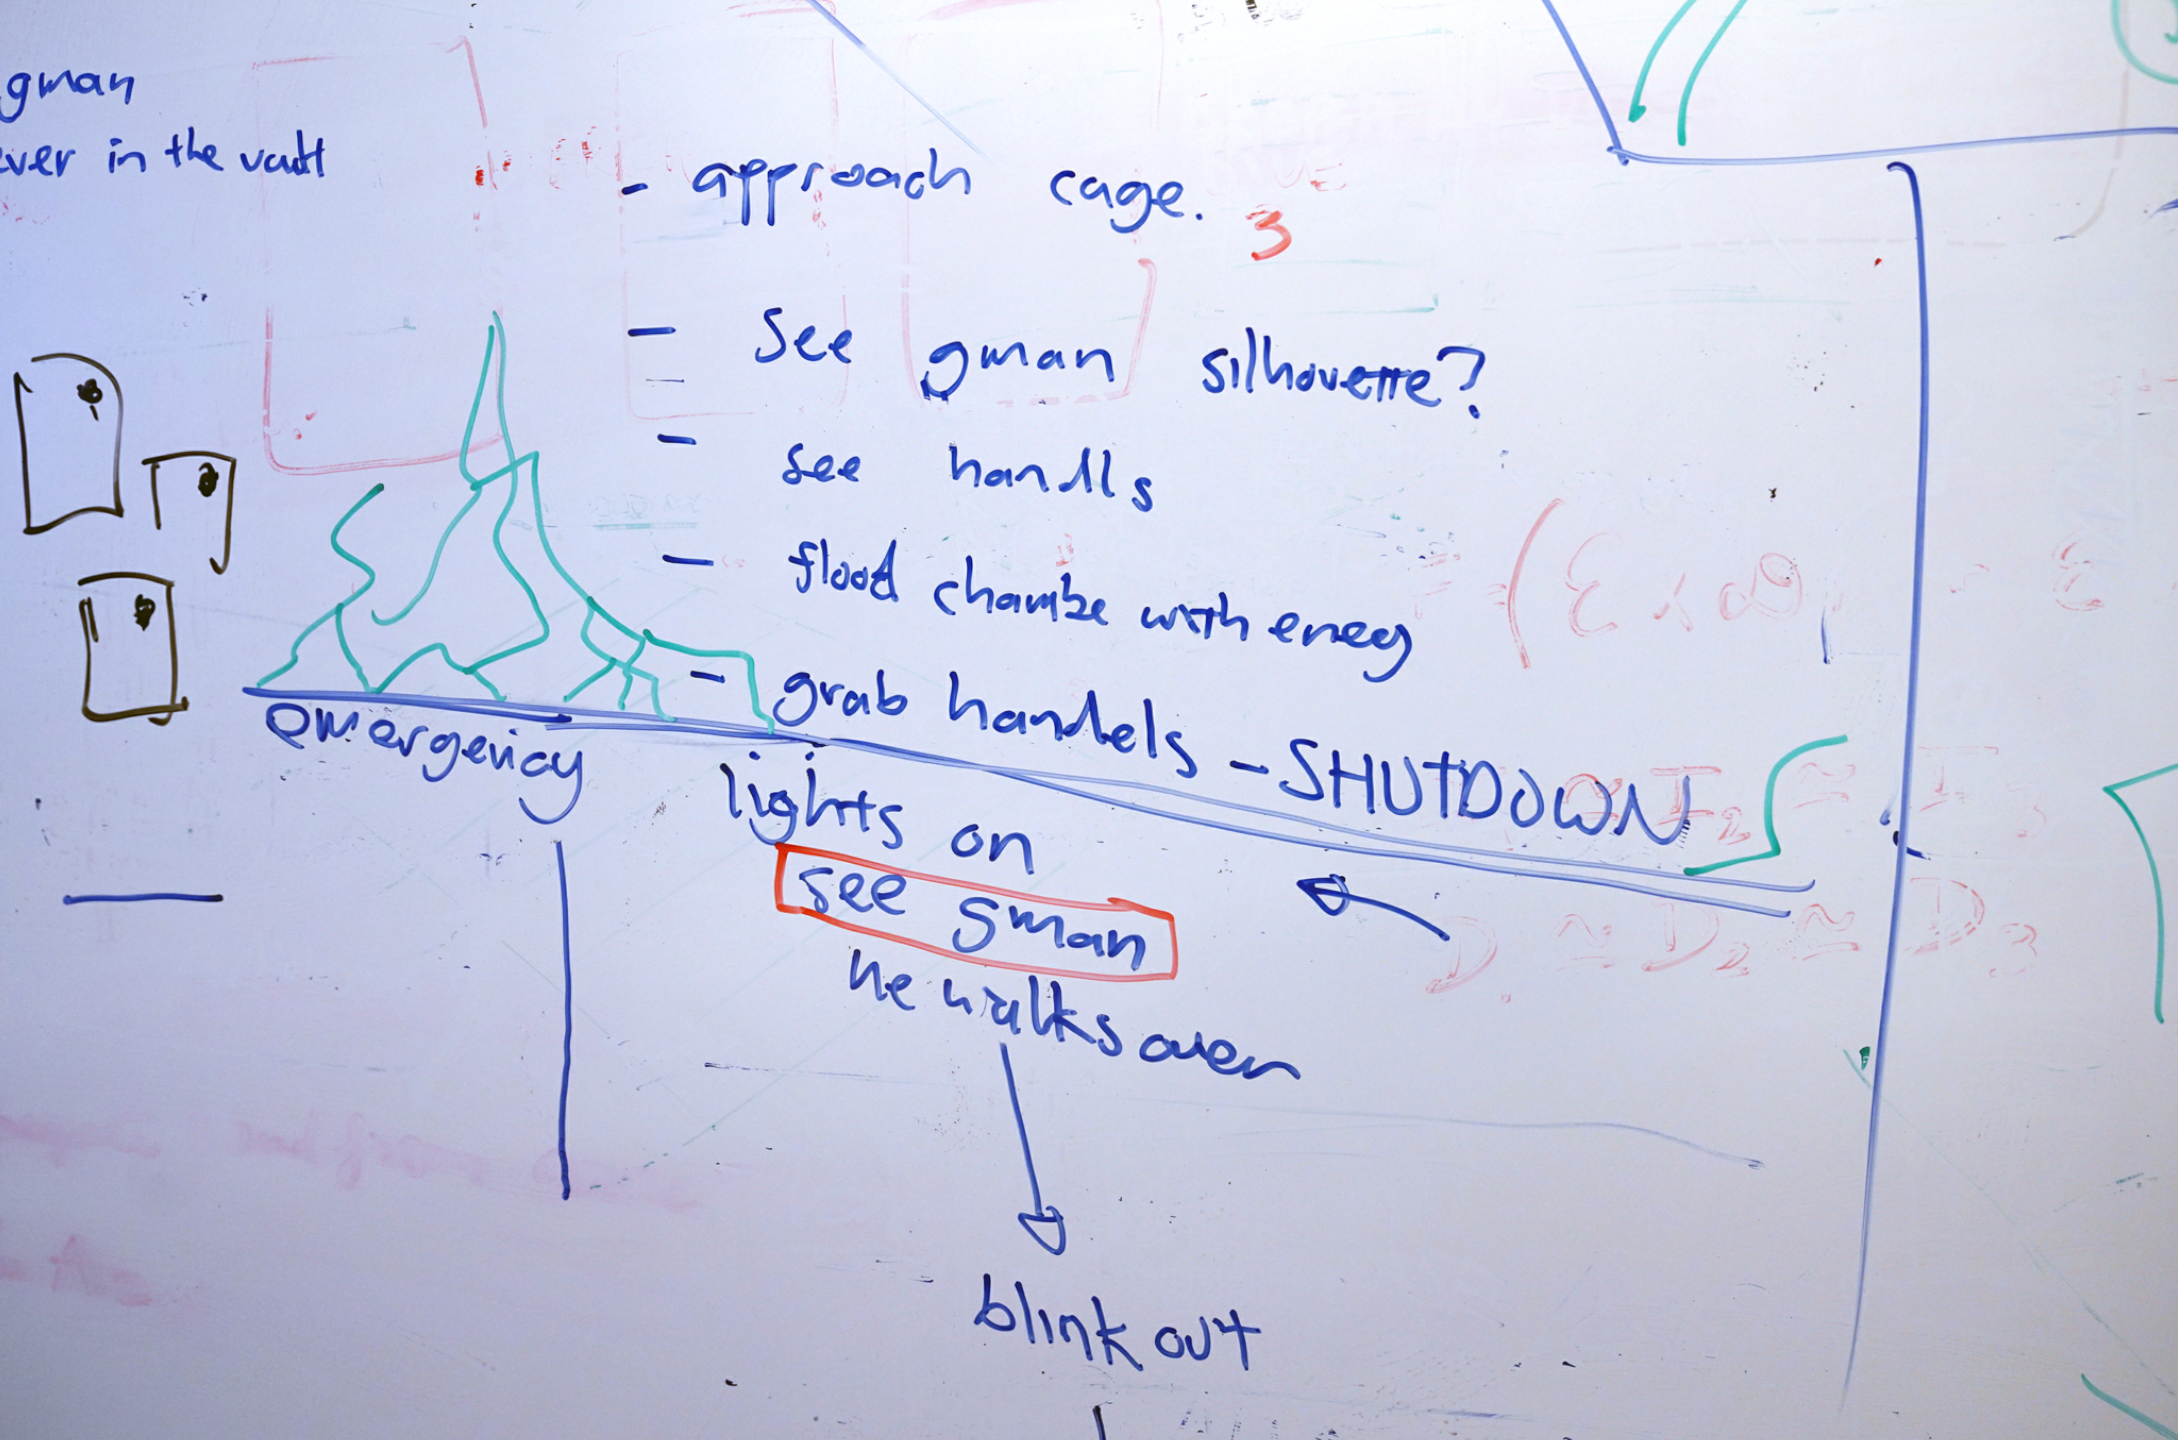 gman
ever in the vault
- approach cage.
3
- See gman silhouette?
- see handls
- flood chambe with eneg
- grab handels - SHUTDOWN
emergency lights on
see gman
he walks over
blink out